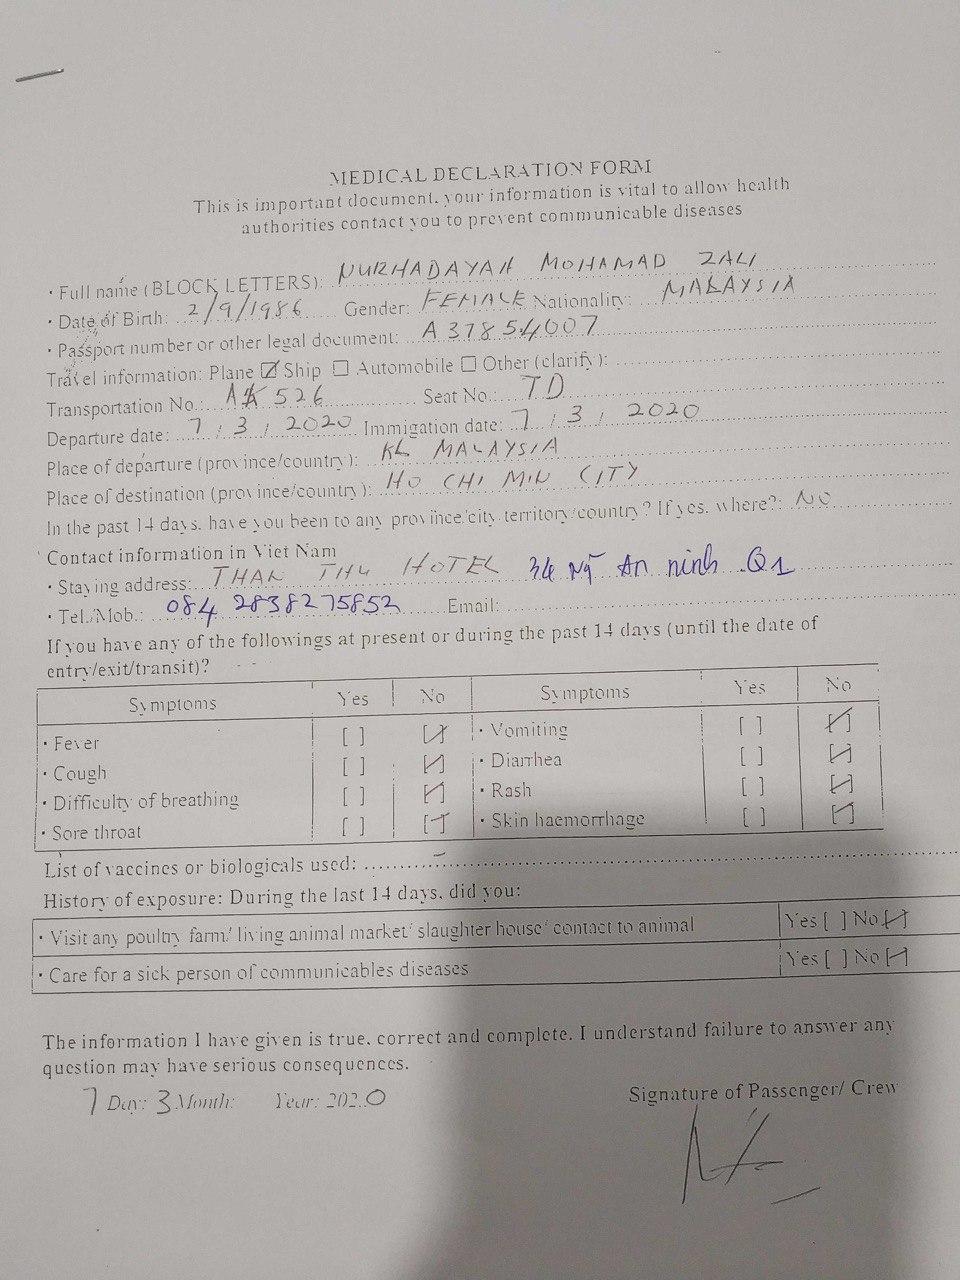 MEDICAL DECLARATION FORM
This is important document, your information is vital to allow health
authorities contact you to prevent communicable diseases
· Full name (BLOCK LETTERS): NURHADAYAH MOHAMAD ZALI
· Date of Birth: 2/9/1986 Gender: FEMALE Nationality: MALAYSIA
· Passport number or other legal document: A37854007
Travel information: Plane ☑ Ship ☐ Automobile ☐ Other (clarify):
Transportation No.: AK 526 Seat No.: 7D
Departure date: 7 / 3 / 2020 Immigation date: 7 / 3 / 2020
Place of departure (province/country): KL MALAYSIA
Place of destination (province/country): HO CHI MIN CITY
In the past 14 days, have you been to any province/city/territory/country? If yes, where?: NO
Contact information in Viet Nam
· Staying address: THAN THU HOTEL 34 An ninh Q1
· Tel./Mob.: 084 2838275852 Email:
If you have any of the followings at present or during the past 14 days (until the date of
entry/exit/transit)?
Symptoms Yes No Symptoms Yes No
· Fever [ ] [✓] · Vomiting [ ] [✓]
· Cough [ ] [✓] · Diarrhea [ ] [✓]
· Difficulty of breathing [ ] [✓] · Rash [ ] [✓]
· Sore throat [ ] [✓] · Skin haemorrhage [ ] [✓]
List of vaccines or biologicals used: –
History of exposure: During the last 14 days, did you:
· Visit any poultry farm/ living animal market/ slaughter house/ contact to animal Yes [ ] No [✓]
· Care for a sick person of communicables diseases Yes [ ] No [✓]
The information I have given is true, correct and complete. I understand failure to answer any
question may have serious consequences.
7 Day: 3 Month: Year: 2020
Signature of Passenger/ Crew